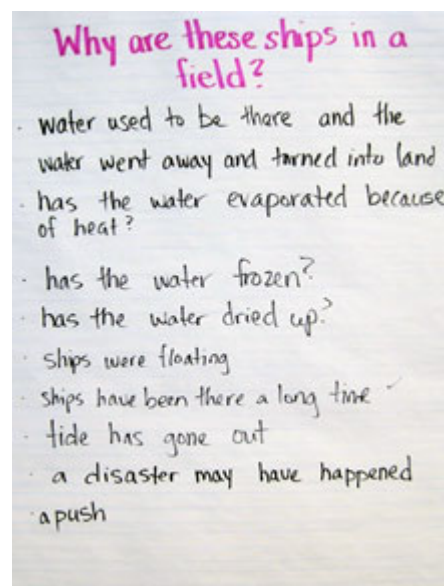 Why are these ships in a
field?
· water used to be there and the
water went away and turned into land
· has the water evaporated because
of heat?
· has the water frozen?
· has the water dried up?
· ships were floating
· ships have been there a long time
· tide has gone out
· a disaster may have happened
· a push